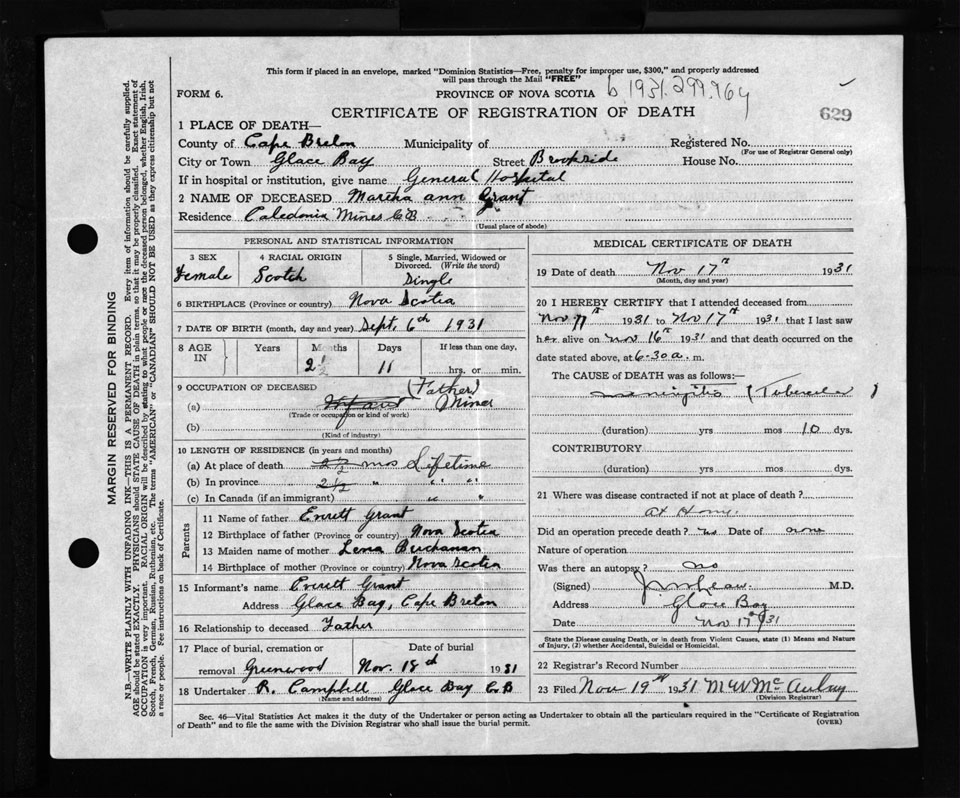 This form if placed in an envelope, marked "Dominion Statistics—Free, penalty for improper use, $300," and properly addressed
will pass through the Mail "FREE"
FORM 6. PROVINCE OF NOVA SCOTIA b 1931.299.964
CERTIFICATE OF REGISTRATION OF DEATH 629
1 PLACE OF DEATH—
County of Cape Breton Municipality of Registered No.
(For use of Registrar General only)
City or Town Glace Bay Street Brookside House No.
If in hospital or institution, give name General Hospital
2 NAME OF DECEASED Martha ann Grant
Residence Caledonia Mines C B
(Usual place of abode)
PERSONAL AND STATISTICAL INFORMATION
3 SEX 4 RACIAL ORIGIN 5 Single, Married, Widowed or
Divorced. (Write the word)
Female Scotch Single
6 BIRTHPLACE (Province or country) Nova Scotia
7 DATE OF BIRTH (month, day and year) Sept. 6th 1931
8 AGE IN Years Months Days If less than one day,
2 1/2 11 hrs. or min.
9 OCCUPATION OF DECEASED (Father)
(a) Infant Miner
(Trade or occupation or kind of work)
(b)
(Kind of industry)
10 LENGTH OF RESIDENCE (in years and months)
(a) At place of death 2 1/2 mos Lifetime
(b) In province 2 1/2 " " "
(c) In Canada (if an immigrant) " "
Parents
11 Name of father Everett Grant
12 Birthplace of father (Province or country) Nova Scotia
13 Maiden name of mother Lena Buchanan
14 Birthplace of mother (Province or country) Nova Scotia
15 Informant's name Everett Grant
Address Glace Bay, Cape Breton
16 Relationship to deceased Father
17 Place of burial, cremation or Date of burial
removal Greenwood Nov. 18th 1931
18 Undertaker R. Campbell Glace Bay C.B
(Name and address)
MEDICAL CERTIFICATE OF DEATH
19 Date of death Nov 17th 1931
(Month, day and year)
20 I HEREBY CERTIFY that I attended deceased from
Nov 7th 1931 to Nov 17th 1931 that I last saw
her alive on Nov 16th 1931 and that death occurred on the
date stated above, at 6-30 a. m.
The CAUSE of DEATH was as follows:—
meningitis (Tubercular)
(duration) yrs mos 10 dys.
CONTRIBUTORY
(duration) yrs mos dys.
21 Where was disease contracted if not at place of death?
at Home.
Did an operation precede death? no Date of none
Nature of operation
Was there an autopsy? no
(Signed) M.D.
Address Glace Bay
Date Nov 17th 31
State the Disease causing Death, or in death from Violent Causes, state (1) Means and Nature
of Injury, (2) whether Accidental, Suicidal or Homicidal.
22 Registrar's Record Number
23 Filed Nov 19th 1931
(Division Registrar)
Sec. 46—Vital Statistics Act makes it the duty of the Undertaker or person acting as Undertaker to obtain all the particulars required in the "Certificate of Registration
of Death" and to file the same with the Division Registrar who shall issue the burial permit. (OVER)
MARGIN RESERVED FOR BINDING
N.B.—WRITE PLAINLY WITH UNFADING INK—THIS IS A PERMANENT RECORD. Every item of information should be carefully supplied.
AGE should be stated EXACTLY. PHYSICIANS should STATE CAUSE OF DEATH in plain terms, so that it may be properly classified. Exact statement of
OCCUPATION is very important. RACIAL ORIGIN will be described by stating to what people or race the deceased person belonged, whether English, Irish,
Scotch, French, German, Russian, Ruthenian, etc. The terms "AMERICAN" or "CANADIAN" SHOULD NOT BE USED as they express citizenship but not
a race or people. Fee instructions on back of Certificate.